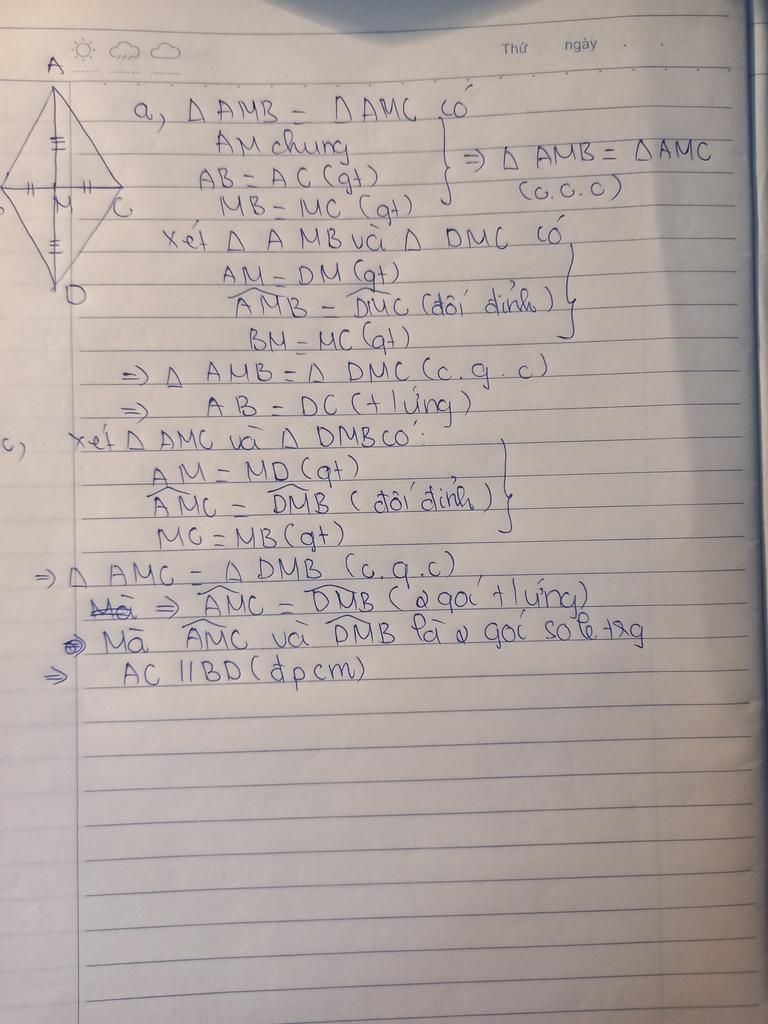 Thứ ngày . .
A
M C
D
a, Δ AMB = Δ AMC có
AM chung
AB = AC (gt)
MB = MC (gt)
=> Δ AMB = Δ AMC
(c.c.c)
Xét Δ AMB và Δ DMC có
AM = DM (gt)
AMB = DMC (đối đỉnh)
BM = MC (gt)
=> Δ AMB = Δ DMC (c.g.c)
=> AB = DC (t/ứng)
c, Xét Δ AMC và Δ DMB có:
AM = MD (gt)
AMC = DMB (đối đỉnh)
MC = MB (gt)
=> Δ AMC = Δ DMB (c.g.c)
Mà => AMC = DMB (2 goí t/ứng)
=> Mà AMC và DMB là 2 goí so le trg
=> AC // BD (đpcm)